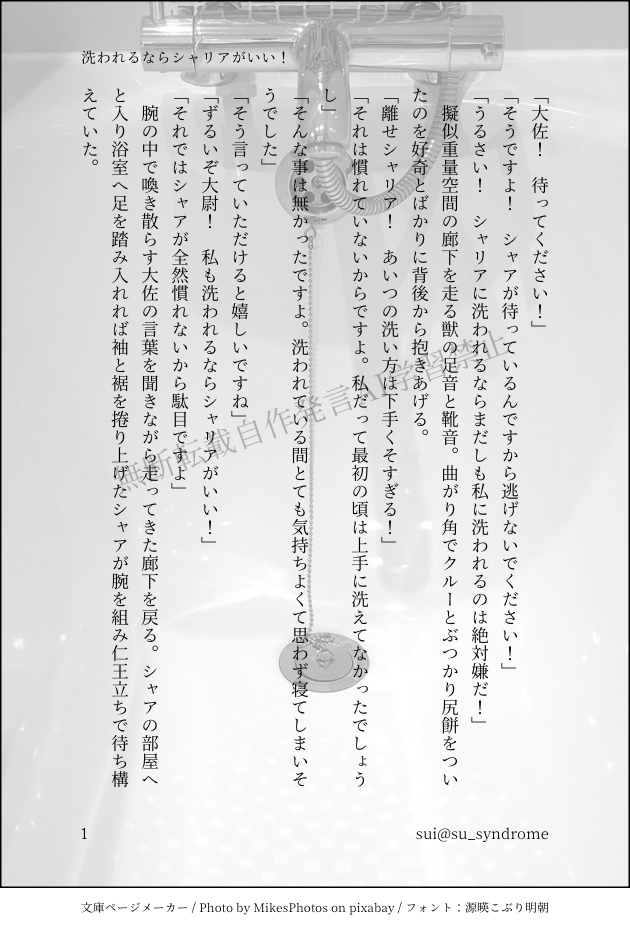 洗われるならシャリアがいい！
「大佐！　待ってください！」
「そうですよ！　シャアが待っているんですから逃げないでください！」
「うるさい！　シャリアに洗われるならまだしも私に洗われるのは絶対嫌だ！」
　擬似重量空間の廊下を走る獣の足音と靴音。曲がり角でクルーとぶつかり尻餅をつい
たのを好奇とばかりに背後から抱きあげる。
「離せシャリア！　あいつの洗い方は下手くそすぎる！」
「それは慣れていないからですよ。私だって最初の頃は上手に洗えてなかったでしょう
し」
「そんな事は無かったですよ。洗われている間とても気持ちよくて思わず寝てしまいそ
うでした」
「そう言っていただけると嬉しいですね」
「ずるいぞ大尉！　私も洗われるならシャリアがいい！」
「それではシャアが全然慣れないから駄目ですよ」
　腕の中で喚き散らす大佐の言葉を聞きながら走ってきた廊下を戻る。シャアの部屋へ
と入り浴室へ足を踏み入れれば袖と裾を捲り上げたシャアが腕を組み仁王立ちで待ち構
えていた。
無断転載自作発言AI学習禁止
1
sui@su_syndrome
文庫ページメーカー / Photo by MikesPhotos on pixabay / フォント：源暎こぶり明朝